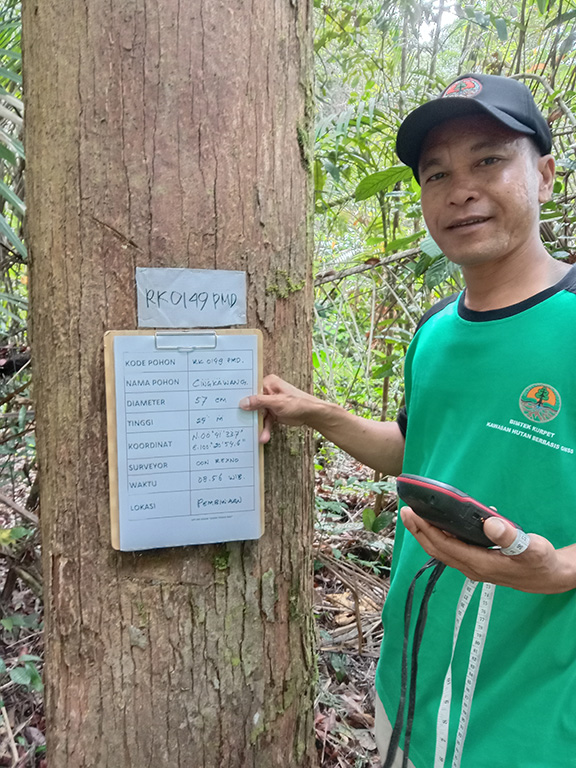 RK0149 PMD
KODE POHON RK 0149 PMD.
NAMA POHON CINGKAWANG
DIAMETER 57 CM
TINGGI 29 M
KOORDINAT N:00°41'23.7"
E:100°20'54.6"
SURVEYOR DON REZNO
WAKTU 08.56 WIB
LOKASI PEMBIKARAN
BIMTEK KURPET
KAWASAN HUTAN BERBASIS